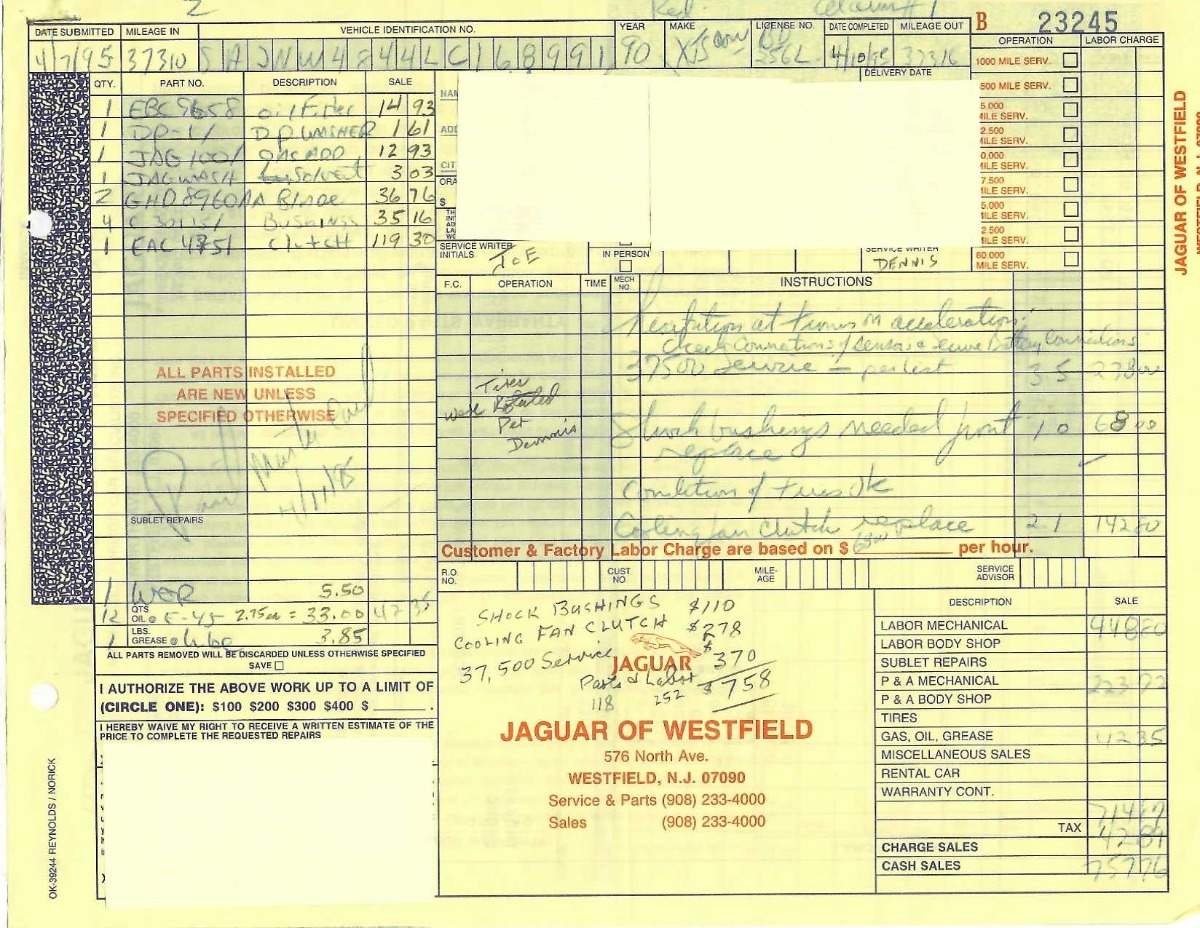 2
Rel.
B 23245
DATE SUBMITTED MILEAGE IN VEHICLE IDENTIFICATION NO. YEAR MAKE LICENSE NO. DATE COMPLETED MILEAGE OUT
4/7/95 37310 SAJNW4844LC168991 90 XJS 4/10/95 37316
OPERATION LABOR CHARGE
DELIVERY DATE
QTY. PART NO. DESCRIPTION SALE
1 EBC 9658 oil Filter 14 93
1 DP-1/ D.P. WASHER 1 61
1 JAG 1001 GAS ADD 12 93
1 JAGWASH Solvent 3 03
2 GHD8960AA Blade 36 76
4 Bushings 35 16
1 EAC 4751 Clutch 119 30
NAM
ADD
CIT
ORA
$
1000 MILE SERV.
500 MILE SERV.
5,000 MILE SERV.
2,500 MILE SERV.
0,000 MILE SERV.
7,500 MILE SERV.
5,000 MILE SERV.
2,500 MILE SERV.
60,000 MILE SERV.
SERVICE WRITER INITIALS JOE
IN PERSON
SERVICE WRITER DENNIS
F.C. OPERATION TIME MECH NO. INSTRUCTIONS
Hesitation at times on acceleration.
Check Connections of sensors & Battery Connections
37500 Service - per list 3 5 238 00
Tires
were Rotated
Per
Dennis
Shock bushings needed front 1 0 68 00
replace
Condition of tires ok
Cooling fan clutch replace 2 1 142 80
ALL PARTS INSTALLED
ARE NEW UNLESS
SPECIFIED OTHERWISE
Paid Master Card
SUBLET REPAIRS
Customer & Factory Labor Charge are based on $ 68 00 per hour.
R.O. NO. CUST. NO MILE-AGE SERVICE ADVISOR
1 WOR 5.50
12 QTS OIL @ 2.75 ea = 33.00 42 35
1 LBS. GREASE @ lube 3.85
ALL PARTS REMOVED WILL BE DISCARDED UNLESS OTHERWISE SPECIFIED
SAVE
I AUTHORIZE THE ABOVE WORK UP TO A LIMIT OF
(CIRCLE ONE): $100 $200 $300 $400 $ .
I HEREBY WAIVE MY RIGHT TO RECEIVE A WRITTEN ESTIMATE OF THE
PRICE TO COMPLETE THE REQUESTED REPAIRS
X
SHOCK BUSHINGS $110
COOLING FAN CLUTCH $278
37,500 Service $370
Parts & Labor $758
118 252
JAGUAR
JAGUAR OF WESTFIELD
576 North Ave.
WESTFIELD, N.J. 07090
Service & Parts (908) 233-4000
Sales (908) 233-4000
DESCRIPTION SALE
LABOR MECHANICAL 448 80
LABOR BODY SHOP
SUBLET REPAIRS
P & A MECHANICAL 223 72
P & A BODY SHOP
TIRES
GAS, OIL, GREASE 42 35
MISCELLANEOUS SALES
RENTAL CAR
WARRANTY CONT.
714 87
TAX 42 89
CHARGE SALES
CASH SALES 757 76
JAGUAR OF WESTFIELD
WESTFIELD, N.J. 07090
OK-39244 REYNOLDS / NORICK